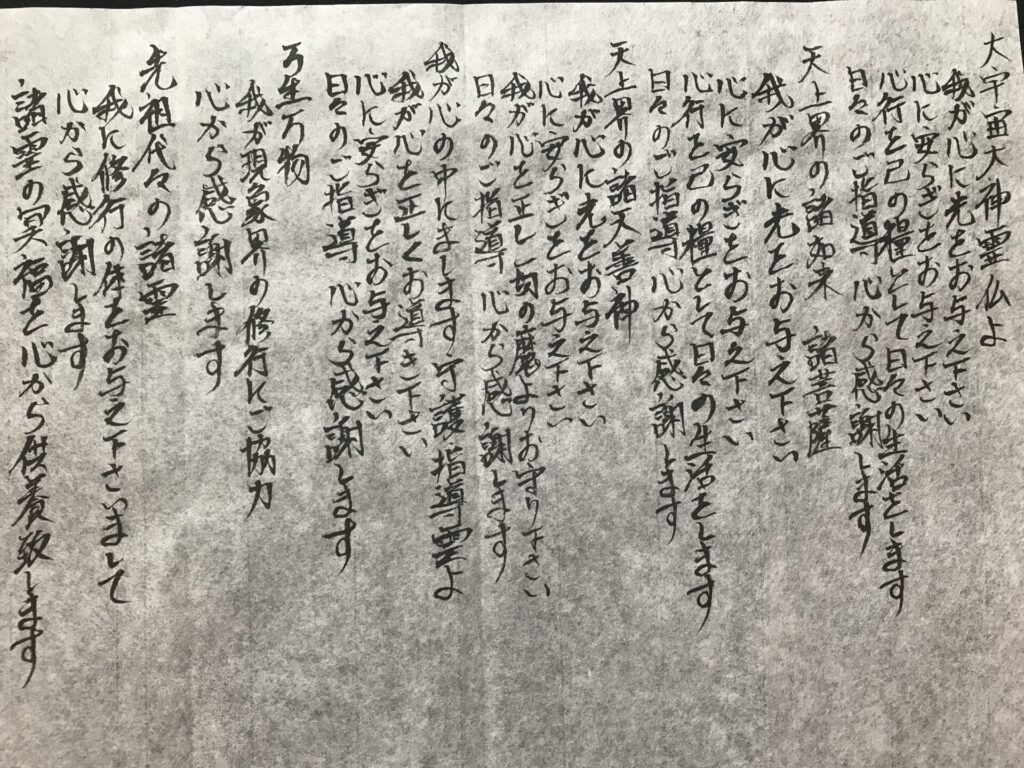 大宇宙大神霊仏よ
我が心に光をお与え下さい
心に安らぎをお与え下さい
心行を己の糧として日々の生活をします
日々のご指導 心から感謝します
天上界の諸如来 諸菩薩
我が心に光をお与え下さい
心に安らぎをお与え下さい
心行を己の糧として日々の生活をします
日々のご指導 心から感謝します
天上界の諸天善神
我が心に光をお与え下さい
心に安らぎをお与え下さい
我が心を正し一切の魔よりお守り下さい
日々のご指導 心から感謝します
我が心の中にまします守護・指導霊よ
我が心を正しくお導き下さい
心に安らぎをお与え下さい
日々のご指導 心から感謝します
万生万物
我が現象界の修行にご協力
心から感謝します
先祖代々の諸霊
我に修行の体をお与え下さいまして
心から感謝します
諸霊の冥福を心から供養致します